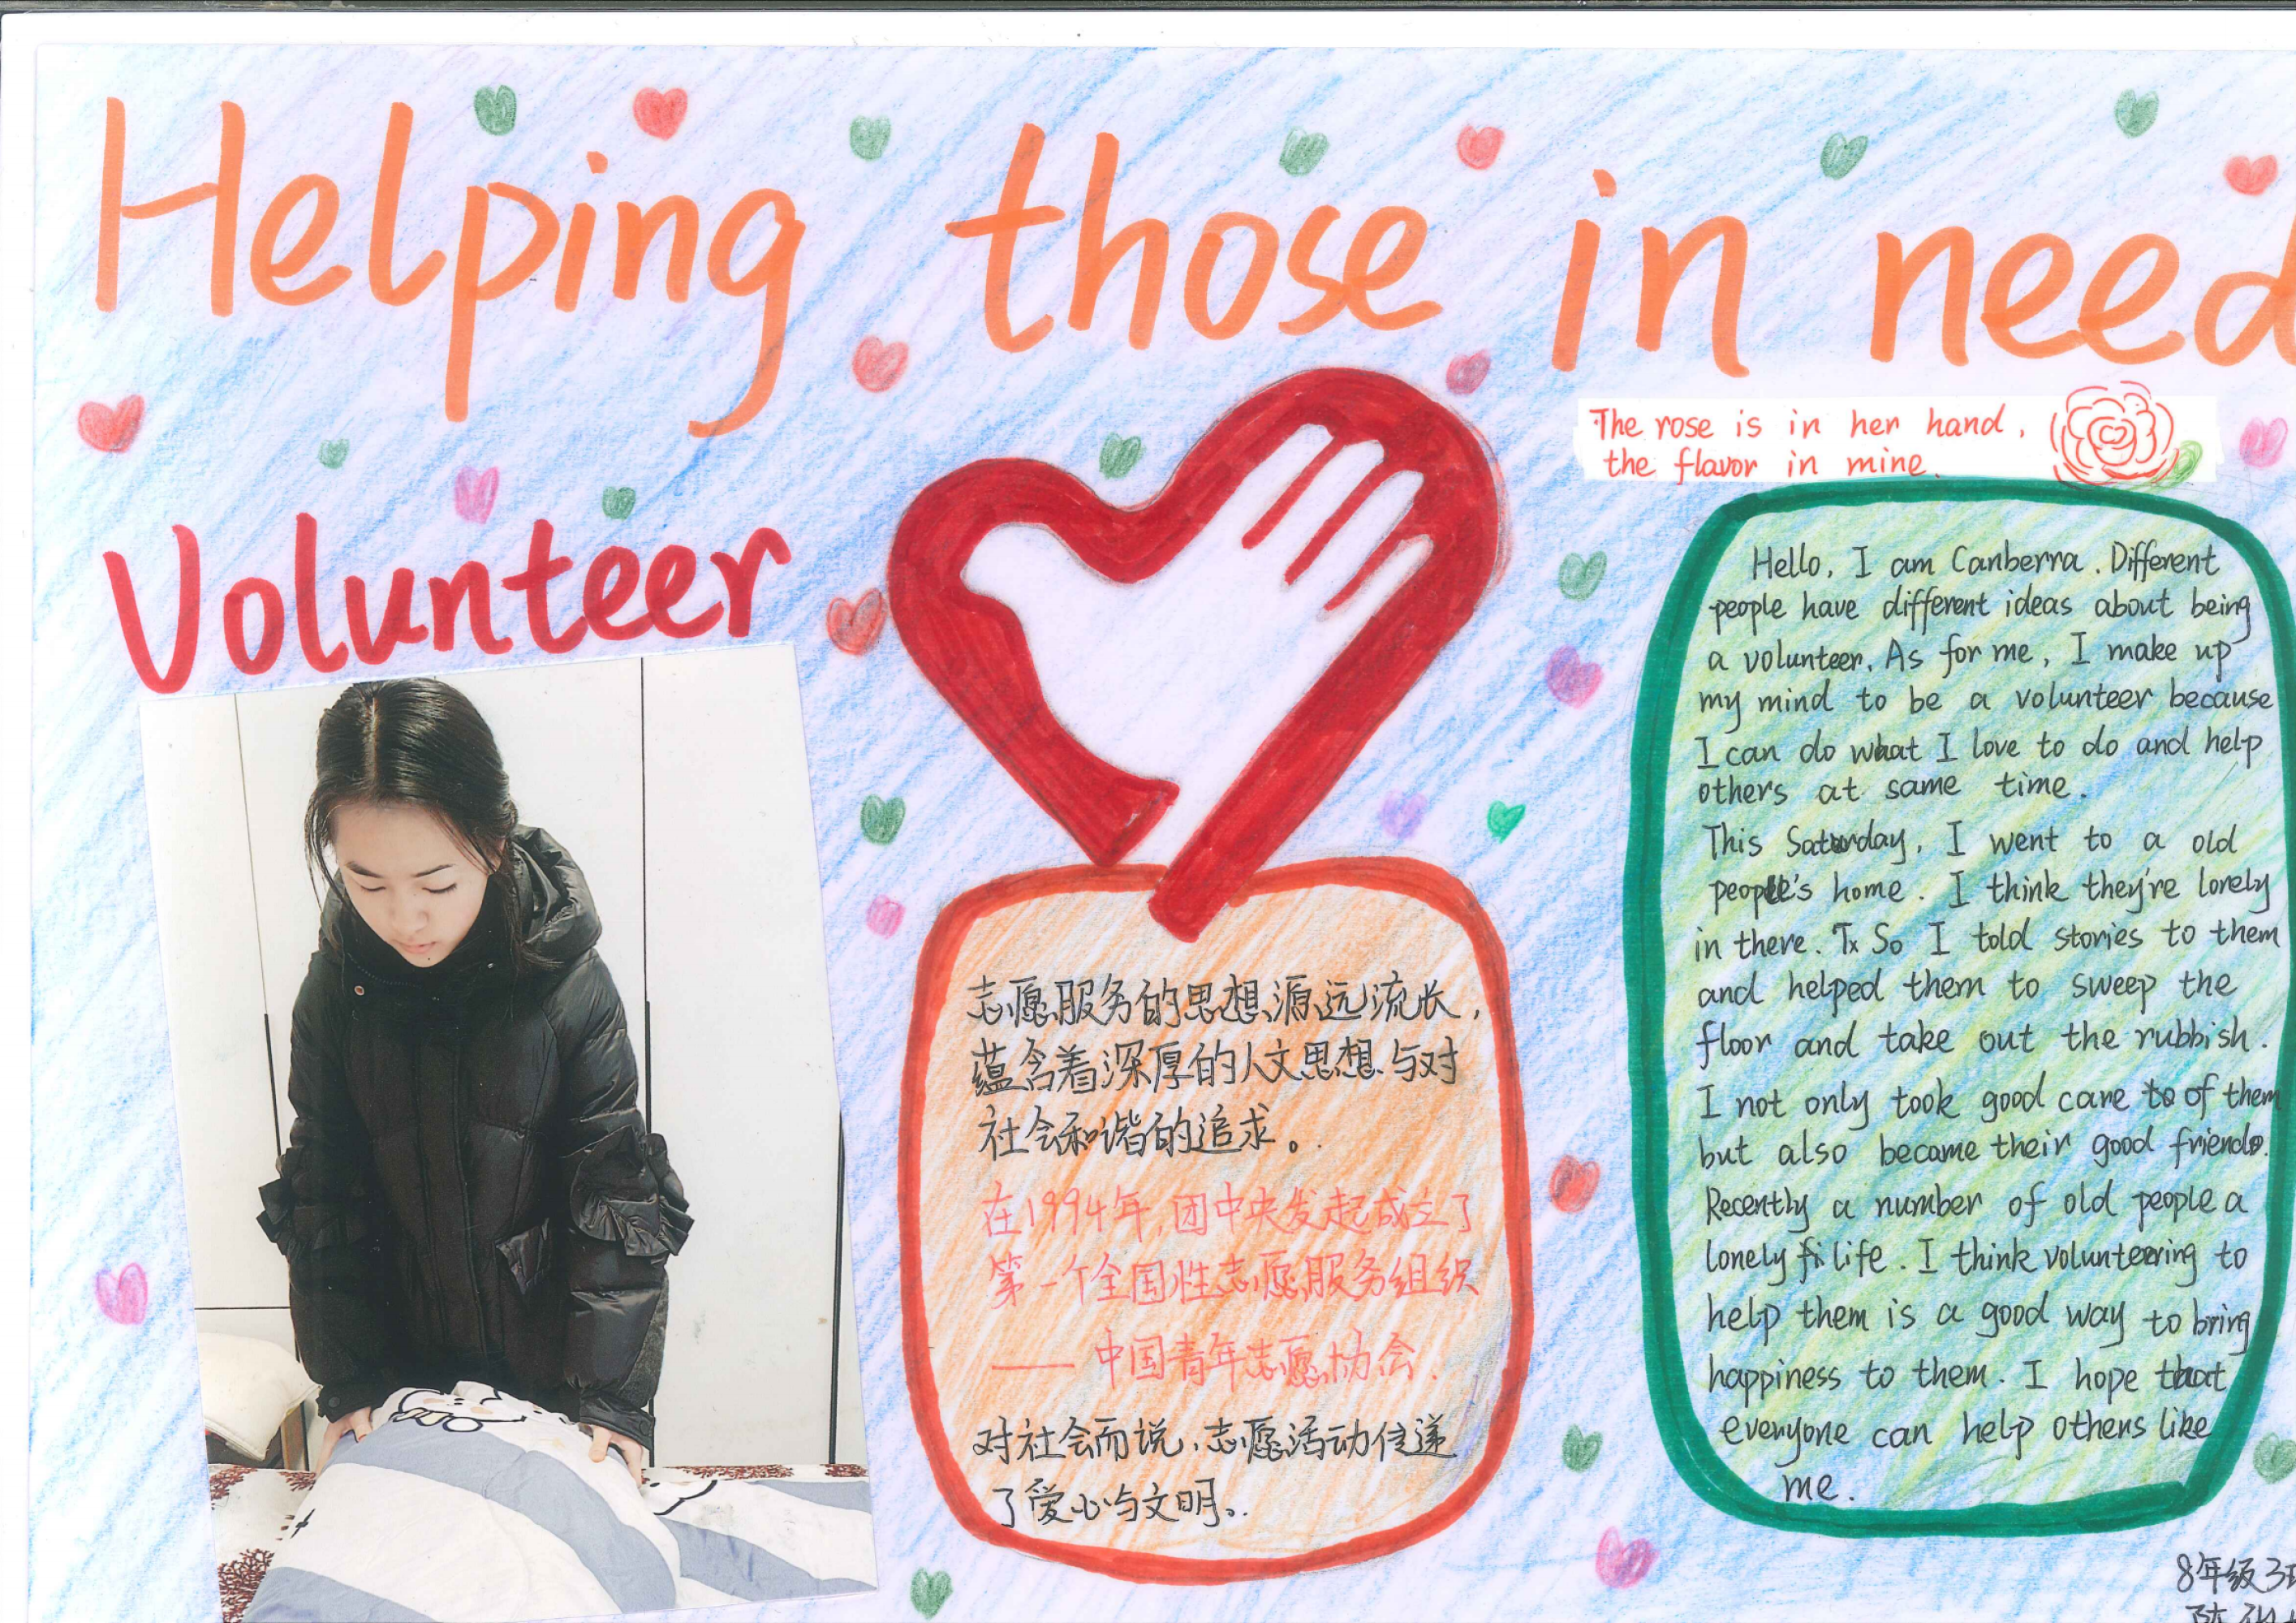 Helping those in need
The rose is in her hand,
the flavor in mine.
Volunteer
志愿服务的思想源远流长,
蕴含着深厚的人文思想与对
社会和谐的追求。
在1994年,团中央发起成立了
第一个全国性志愿服务组织
——中国青年志愿协会.
对社会而说,志愿活动传递
了爱心与文明。
Hello, I am Canberra. Different
people have different ideas about being
a volunteer. As for me, I make up
my mind to be a volunteer because
I can do what I love to do and help
others at same time.
This Saturday, I went to a old
people's home. I think they're lonely
in there. So I told stories to them
and helped them to sweep the
floor and take out the rubbish.
I not only took good care of them
but also became their good friends.
Recently a number of old people a
lonely life. I think volunteering to
help them is a good way to bring
happiness to them. I hope that
everyone can help others like
me.
8年级3